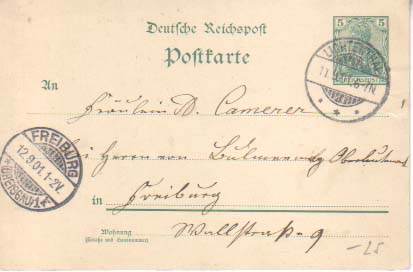 Deutsche Reichspost
5 5
Postkarte
REICHSPOST
LICHTENTHAL
11. 6-7N.
An
Fräulein D. Camerer
FREIBURG
12.9.01.1-2V.
(BREISGAU) 1
bei Herrn von Bulmerincq
in Freiburg
Wohnung
(Straße und Hausnummer)
Wallstraße 9
-25